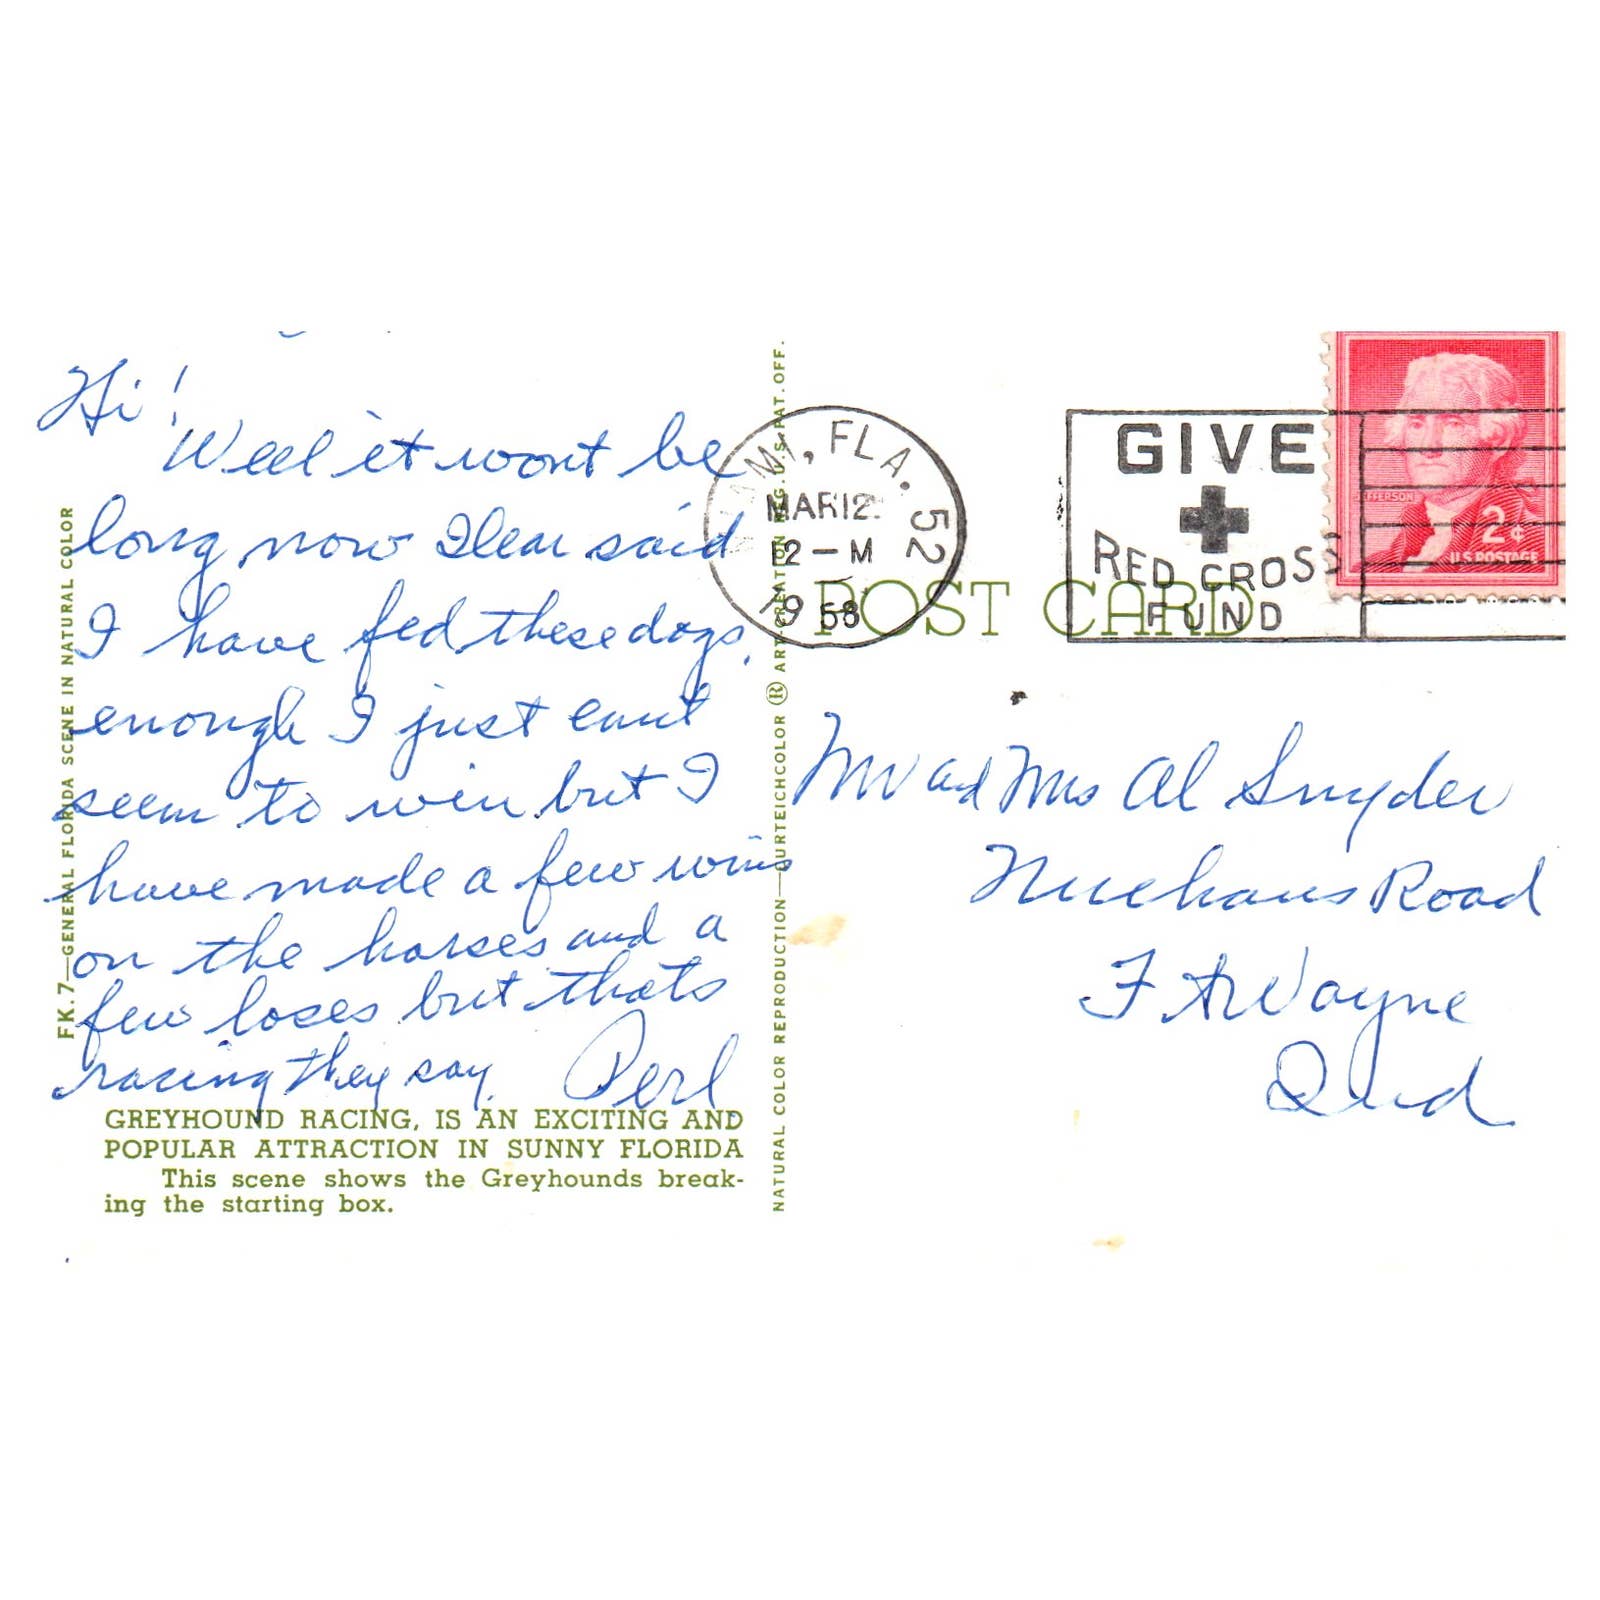 Hi!
Well it wont be
long now Ilear said
I have fed these dogs,
enough I just cant
seem to win but I
have made a few wins
on the horses and a
few loses but thats
racing they say. Perl
GREYHOUND RACING, IS AN EXCITING AND
POPULAR ATTRACTION IN SUNNY FLORIDA
This scene shows the Greyhounds break-
ing the starting box.
FK.7—GENERAL FLORIDA SCENE IN NATURAL COLOR
NATURAL COLOR REPRODUCTION—CURTEICHCOLOR ® ART-CREATION REG. U.S. PAT. OFF.
MIAMI, FLA. 52
MAR 12
12 — M
1958
GIVE
RED CROSS
FUND
JEFFERSON
2¢
U.S. POSTAGE
POST CARD
Mr and Mrs Al Snyder
Nuehaus Road
Ft Wayne
Ind